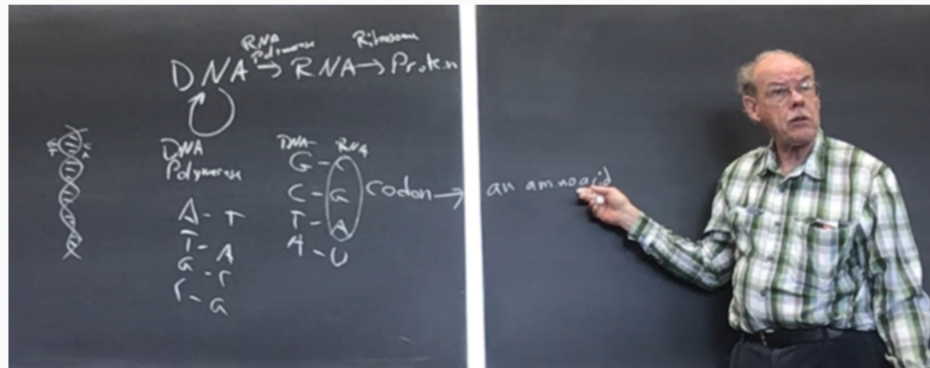 RNA Polymerase Ribosome
DNA → RNA → Protein
DNA
Polymerase
A - T
T - A
G - C
C - G
DNA RNA
G - C
C - G codon → an amino acid
T - A
A - U